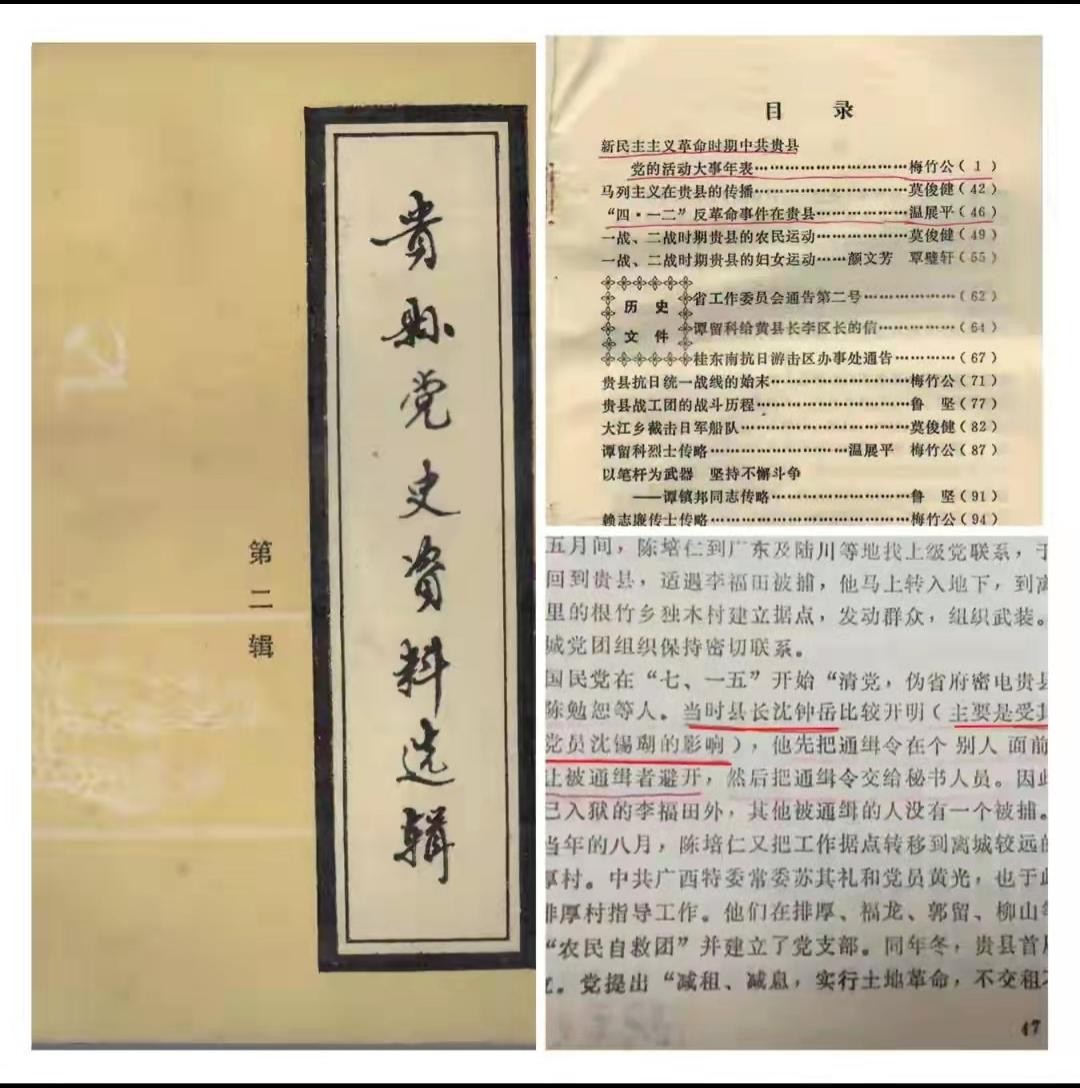 贵县党史资料选辑
第二辑
目 录
新民主主义革命时期中共贵县
党的活动大事年表……………………………梅竹公(1)
马列主义在贵县的传播……………………………莫俊健(42)
“四·一二”反革命事件在贵县………………温展平(46)
一战、二战时期贵县的农民运动………………莫俊健(49)
一战、二战时期贵县的妇女运动……颜文芳 覃璧轩(55)
历史
文件
省工作委员会通告第二号………………(62)
谭留科给黄县长李区长的信……………(64)
桂东南抗日游击区办事处通告…………(67)
贵县抗日统一战线的始末…………………………梅竹公(71)
贵县战工团的战斗历程……………………………鲁 坚(77)
大江乡截击日军船队………………………………莫俊健(82)
谭留科烈士传略…………………………温展平 梅竹公(87)
以笔杆为武器 坚持不懈斗争
——谭镇邦同志传略…………………………鲁 坚(91)
赖志廉传士传略……………………………………梅竹公(94)
五月间，陈培仁到广东及陆川等地找上级党联系，于
回到贵县，适遇李福田被捕，他马上转入地下，到离
里的根竹乡独木村建立据点，发动群众，组织武装。
城党团组织保持密切联系。
国民党在“七、一五”开始“清党，伪省府密电贵县
陈勉恕等人。当时县长沈钟岳比较开明（主要是受其
党员沈锡瑚的影响），他先把通缉令在个 别人 面前
让被通缉者避开，然后把通缉令交给秘书人员。因此
已入狱的李福田外，其他被通缉的人没有一个被捕。
当年的八月，陈培仁又把工作据点转移到离城较远的
厚村。中共广西特委常委苏其礼和党员黄光，也于此
排厚村指导工作。他们在排厚、福龙、郭留、柳山等
“农民自救团”并建立了党支部。同年冬，贵县首届
立。党提出“减租、减息，实行土地革命，不交租不
47